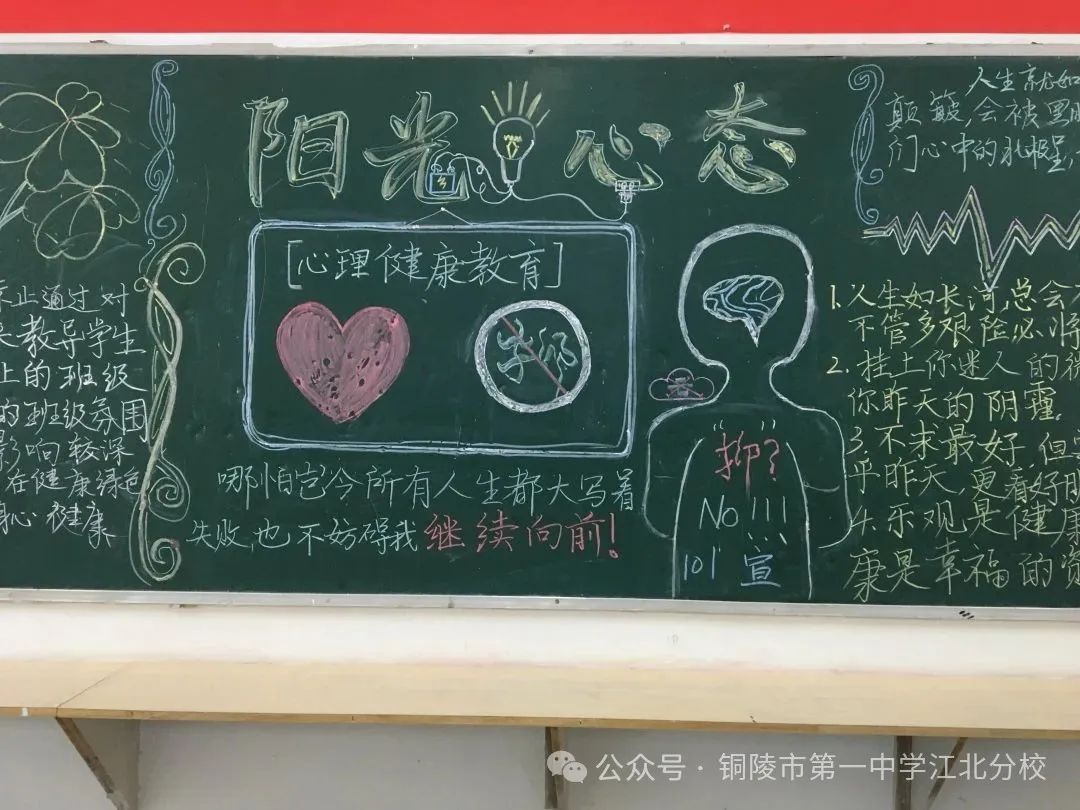 阳光心态
[心理健康教育]
哪怕岂今所有人生都大写着
失败,也不妨碍我继续向前!
通过对
教导学生
上的班级
的班级氛围
影响较深
在健康绿色
身心健康
"抑"?
NO!!!
101宣
人生就如
颠簸,会被黑
们心中的
1.人生如长河,总会
不管多艰险必将
2.挂上你迷人的微
你昨天的阴霾.
3.不求最好,但
乎昨天,更看好明
4.乐观是健康
康是幸福的资
公众号·铜陵市第一中学江北分校